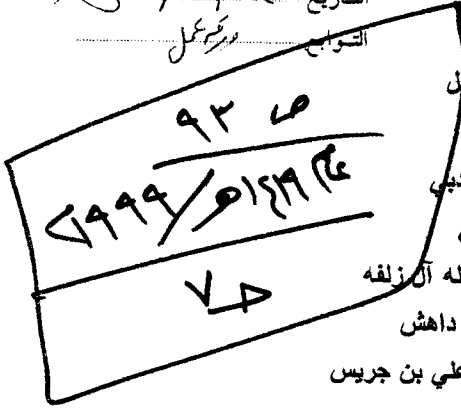 التاريخ
التوابع ورقم عمل
ل
ص ٩٣
عام ١٤١٩هـ/١٩٩٩م
ح ٧
له آل زلفه
داهش
علي بن جريس